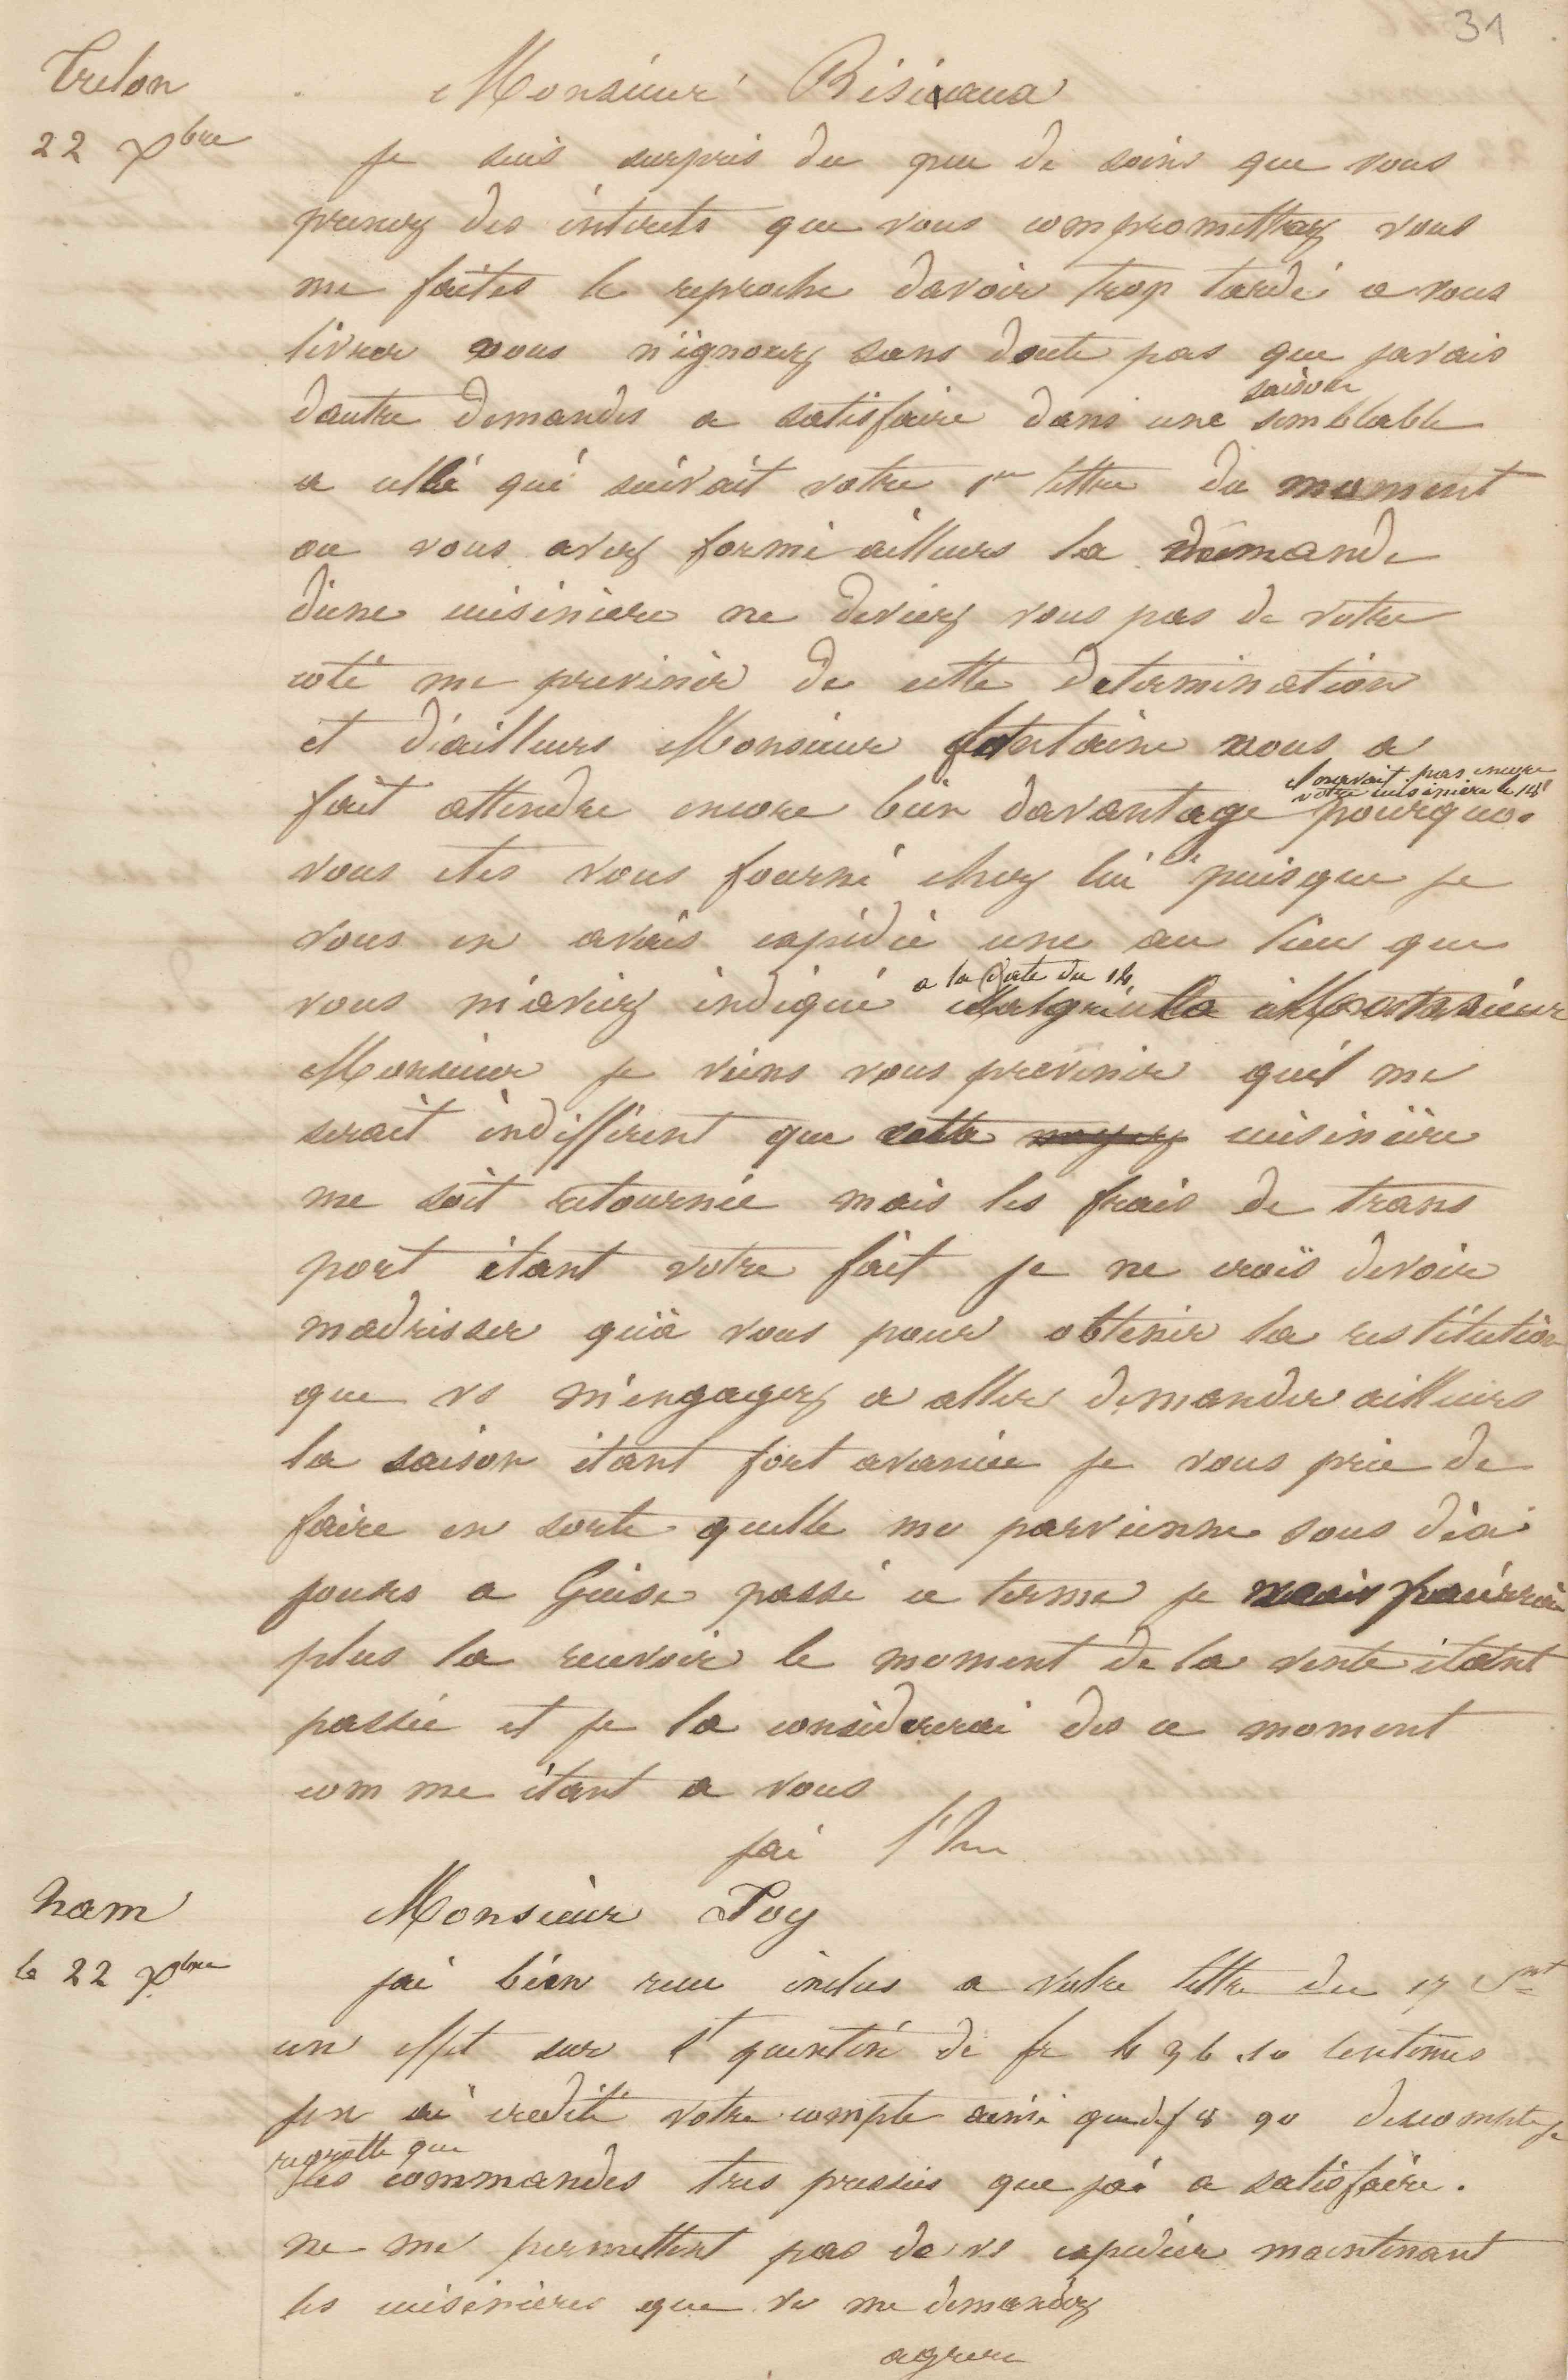 31
Trelon
22 Xbre
Monsieur
je suis surpris du peu de soins que vous
prenez des interets que vous compromettez vous
me faites le reproche davoir trop tardé a vous
livrer vous n'ignorez sans doute pas que javais
saison
dautre demandes a satisfaire dans une semblable
a celle qui suivait votre 1re lettre du moment
ou vous avez formé ailleurs la demande
d'une cuisiniere ne deviez vous pas de votre
coté me prevenir de cette determination
et d'ailleurs Monsieur fontaine vous a
il n'avait pas encore
votre cuisiniere le 18
fait attendre encore bien davantage pourquoi
vous etes vous fourni chez lui puisque je
vous en avais expédié une au lieu que
a la date du 14
vous m'aviez indiqué Malgré cela Monsieur
Monsieur je viens vous prevenir quil me
serait indifférent que cette cuisinière
me soit retournée mais les frais de trans
port étant votre fait je ne crois devoir
madresser qu'à vous pour obtenir la restitution
que vs m'engagez a aller demander ailleurs
la saison étant fort avancée je vous prie de
faire en sorte quelle me parvienne sous dix
jours a Guise passé ce terme je pourrai
plus la recevoir le moment de la vente étant
passée et je la considererai des ce moment
comme étant a vous
jai l'hr
ham
le 22 Xbre
Monsieur Poy
jai bien recu inclus a votre lettre du 17 Ct
un effet sur St quentin de fr 96 10 centimes
jen ai credité votre compte ainsi que de f 8 90 descompte je
regrette que
les commandes tres pressées que jai a satisfaire.
ne me permettent pas de vs expedier maintenant
les cuisinieres que vs me demandez
agreez